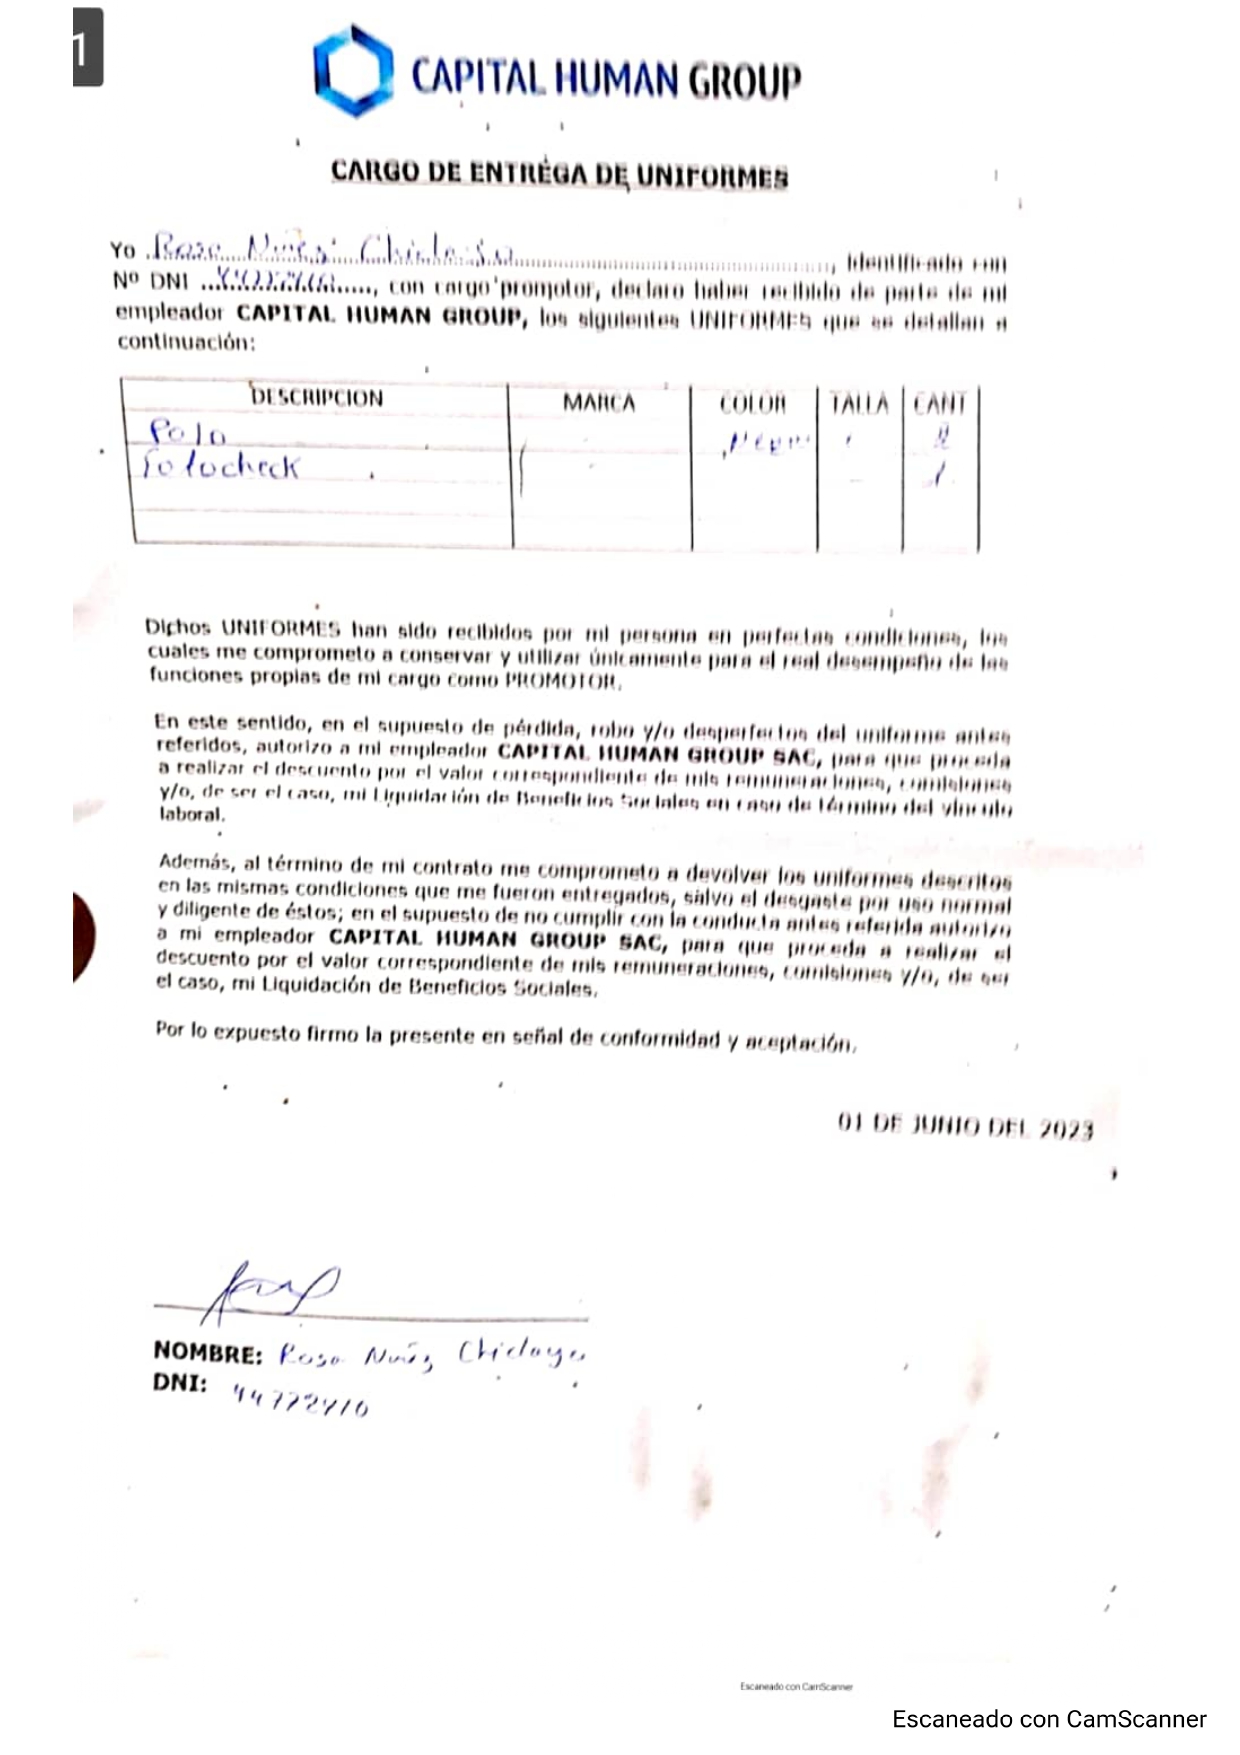 1
CAPITAL HUMAN GROUP
CARGO DE ENTREGA DE UNIFORMES
Yo Rosa Nuñez Chiclayo, identificado con
Nº DNI, con cargo promotor, declaro haber recibido de parte de mi
empleador CAPITAL HUMAN GROUP, los siguientes UNIFORMES que se detallan a
continuación:
DESCRIPCION MARCA COLOR TALLA CANT
Polo - Negro 2
Fotocheck - - 1
Dichos UNIFORMES han sido recibidos por mi persona en perfectas condiciones, los
cuales me comprometo a conservar y utilizar únicamente para el real desempeño de las
funciones propias de mi cargo como PROMOTOR.
En este sentido, en el supuesto de pérdida, robo y/o desperfectos del uniforme antes
referidos, autorizo a mi empleador CAPITAL HUMAN GROUP SAC, para que proceda
a realizar el descuento por el valor correspondiente de mis remuneraciones, comisiones
y/o, de ser el caso, mi Liquidación de Beneficios Sociales en caso de término del vínculo
laboral.
Además, al término de mi contrato me comprometo a devolver los uniformes descritos
en las mismas condiciones que me fueron entregados, salvo el desgaste por uso normal
y diligente de éstos; en el supuesto de no cumplir con la conducta antes referida autorizo
a mi empleador CAPITAL HUMAN GROUP SAC, para que proceda a realizar el
descuento por el valor correspondiente de mis remuneraciones, comisiones y/o, de ser
el caso, mi Liquidación de Beneficios Sociales.
Por lo expuesto firmo la presente en señal de conformidad y aceptación.
01 DE JUNIO DEL 2023
NOMBRE: Rosa Nuñez Chiclayo
DNI:
Escaneado con CamScanner
Escaneado con CamScanner